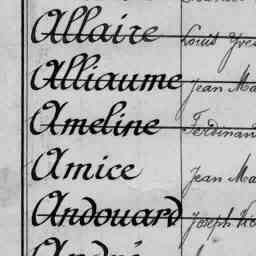 Allaire Louis Yves
Alliaume Jean Ma
Ameline Ferdinand
Amice Jean Ma
Andouard Joseph
André